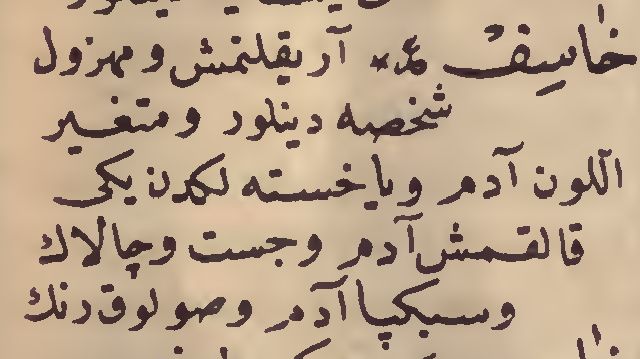 خاسف آريقلنمش ومهزول
شخصه دينلور ومتغير
اللون آدم وياخسته لكدن يكى
قالقمش آدم وجست وچالاك
وسبكپا آدم وصولوق رنك